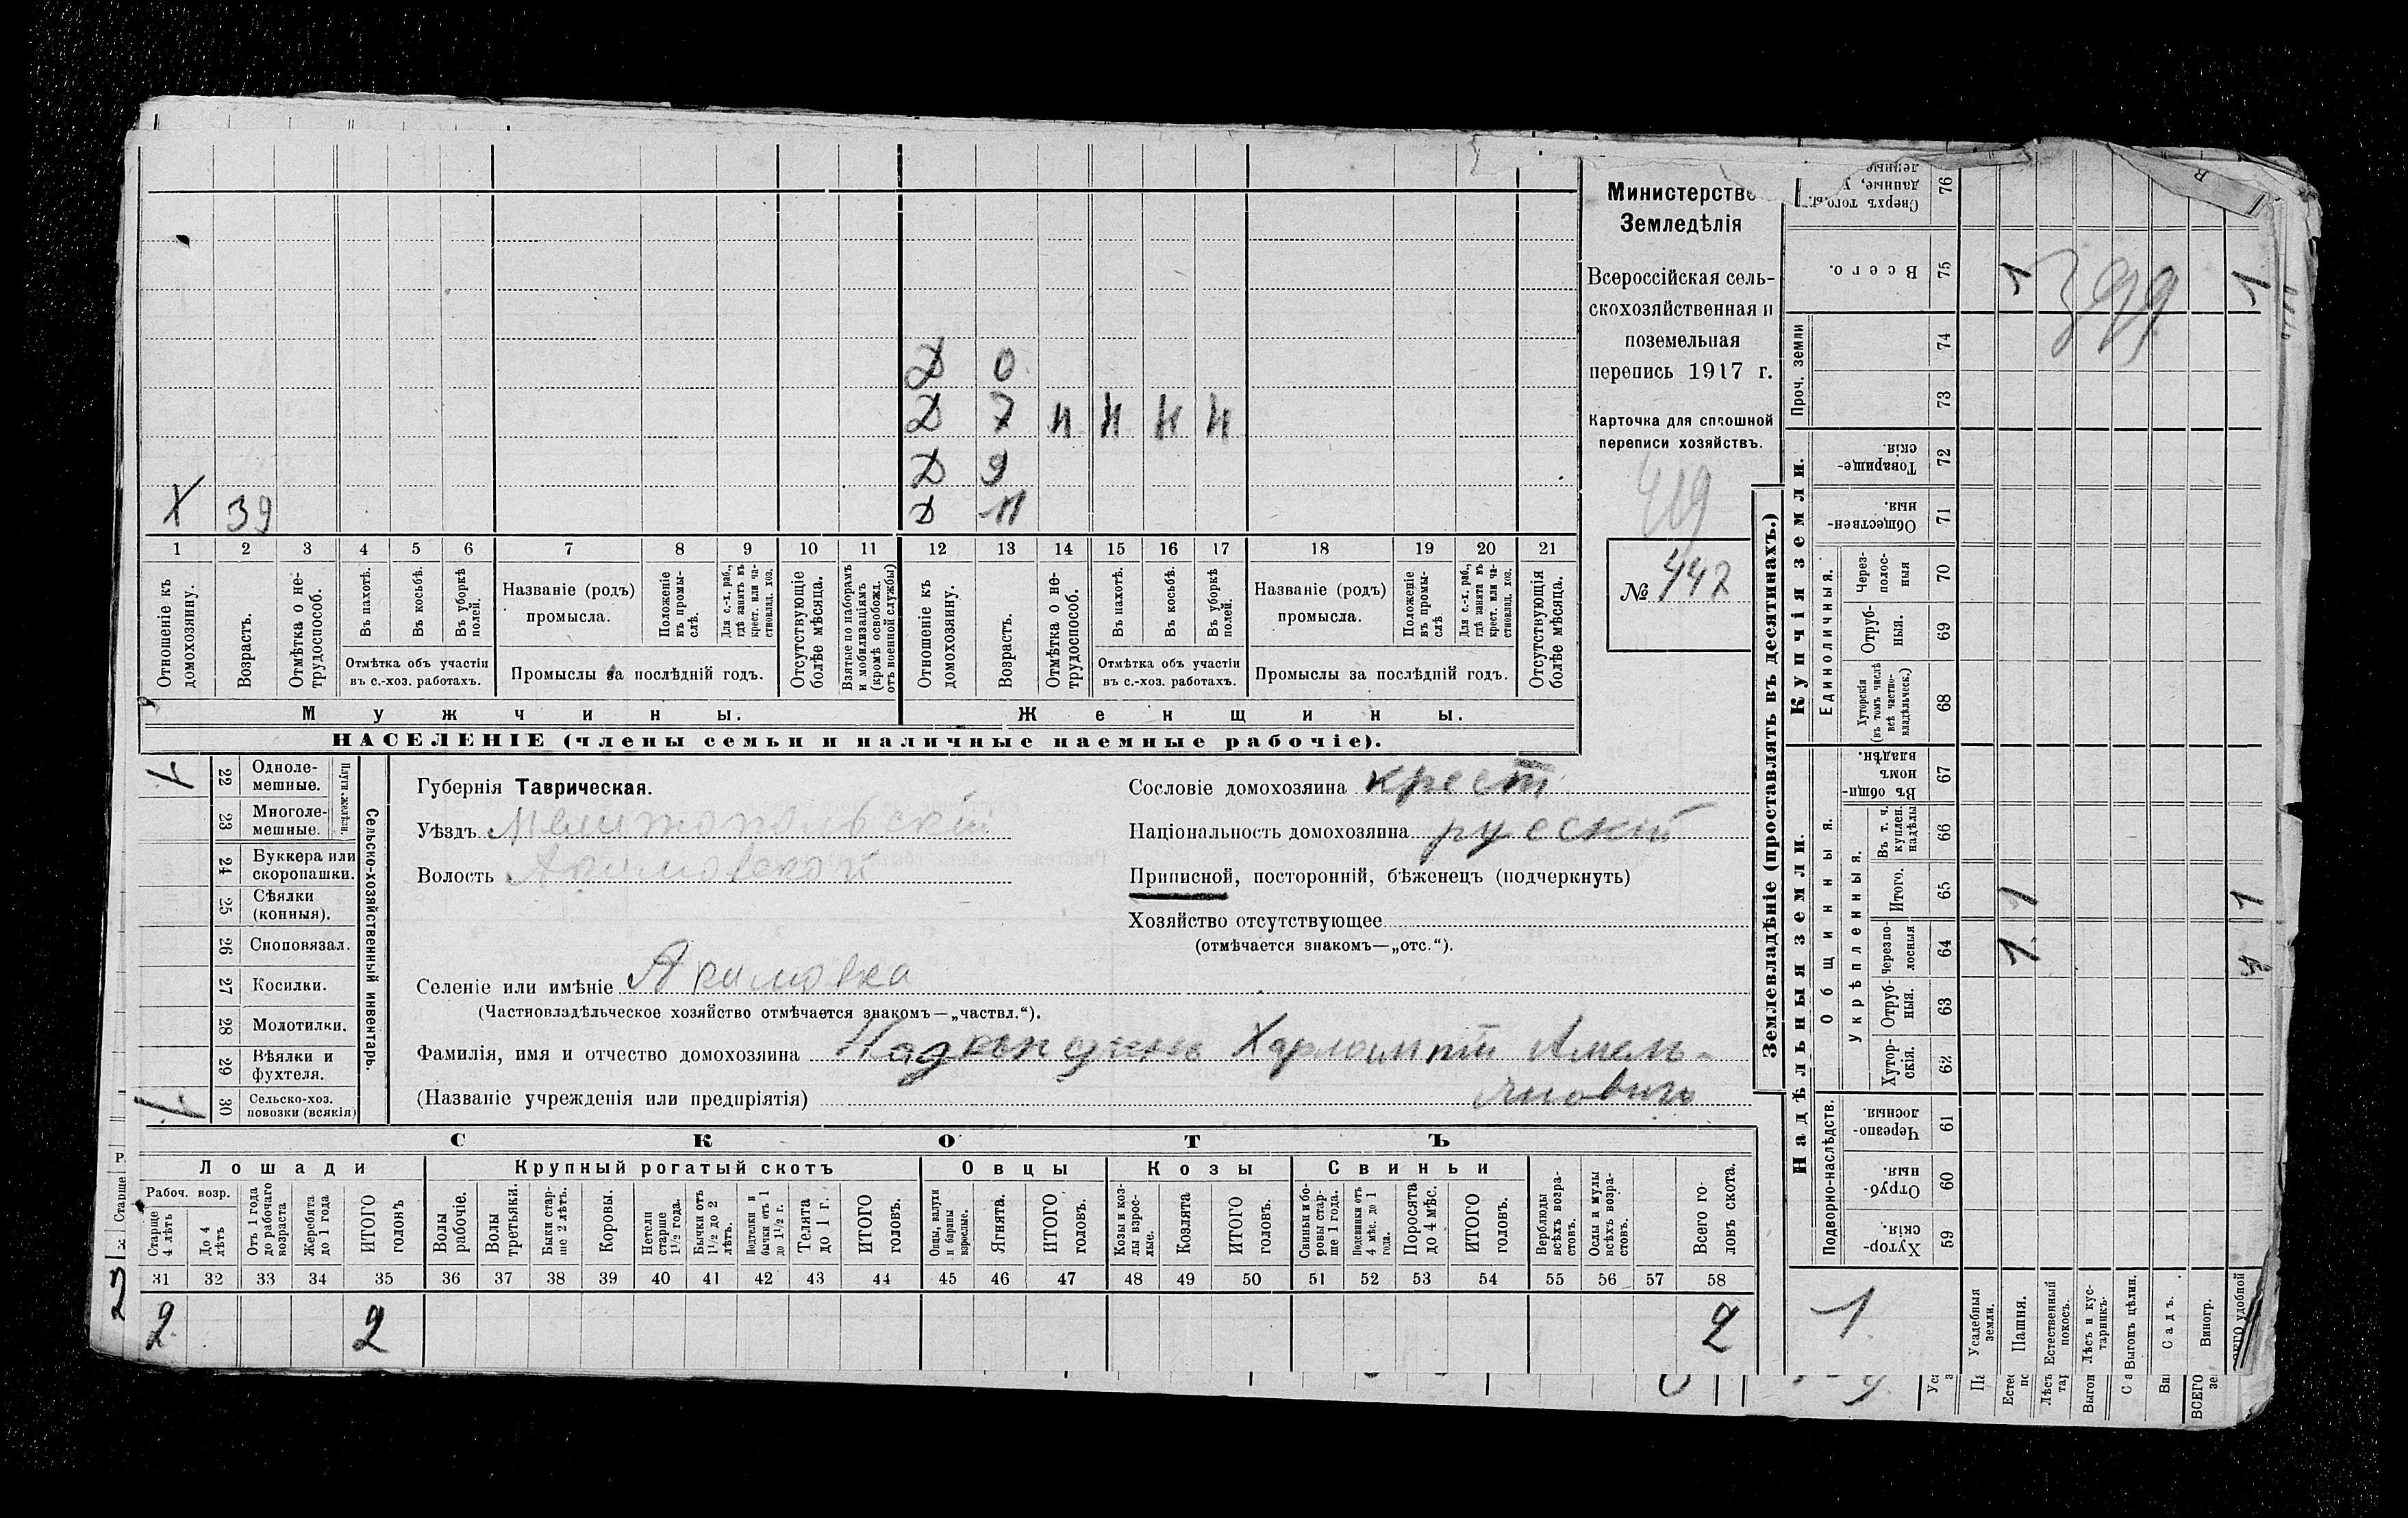 Д 0
Д 7 н н н н
Д 9
Х 39 Д 11
1 2 3 4 5 6 7 8 9 10 11 12 13 14 15 16 17 18 19 20 21
Отношеніе къ домохозяину.
Возрастъ.
Отмѣтка о не-
трудоспособ.
Въ пахотѣ.
Въ косьбѣ.
Въ уборкѣ
полей.
Отмѣтка объ участіи
въ с.-хоз. работахъ.
Названіе (родъ)
промысла.
Положеніе
въ промы-
слѣ.
Для с.-х. раб.,
гдѣ занятъ въ
крест. или ча-
стновлад. хоз.
Промыслы за послѣдній годъ.
Отсутствующіе
болѣе мѣсяца.
Взятые по наборамъ
и мобилизаціямъ
(кромѣ освобожд.
отъ военной службы)
Отношеніе къ
домохозяину.
Возрастъ.
Отмѣтка о не-
трудоспособ.
Въ пахотѣ.
Въ косьбѣ.
Въ уборкѣ
полей.
Отмѣтка объ участіи
въ с.-хоз. работахъ.
Названіе (родъ)
промысла.
Положеніе
въ промы-
слѣ
Для с.-х. раб.,
гдѣ занята въ
крест. или ча-
стновлад. хоз.
Промыслы за послѣдній годъ.
Отсутствующія
болѣе мѣсяца.
Мужчины.
Женщины.
НАСЕЛЕНІЕ (члены семьи и наличные наемные рабочіе).
Министерство
Земледѣлія
Всероссійская сель-
скохозяйственная и
поземельная
перепись 1917 г.
Карточка для сплошной
переписи хозяйствъ.
419
№ 442
22 Одноле-
мешные.
23 Многоле-
мешные.
24 Буккера или
скоропашки.
25 Сѣялки
(конныя).
26 Сноповязал.
27 Косилки.
28 Молотилки.
29 Вѣялки и
фухтеля.
30 Сельско-хоз.
повозки (всякія)
Сельско-хозяйственный инвентарь.
Губернія Таврическая.
Уѣздъ Мелитопольскій
Волость Акимовской
Селеніе или имѣніе Акимовка
(Частновладѣльческое хозяйство отмѣчается знакомъ—„частвл.“).
Фамилія, имя и отчество домохозяина Харлампій Амель-
(Названіе учрежденія или предпріятія) яновичъ
Сословіе домохозяина крест
Національность домохозяина русскій
Приписной, посторонній, бѣженецъ (подчеркнуть)
Хозяйство отсутствующее
(отмѣчается знакомъ—„отс.“).
СКОТЪ
Лошади
Крупный рогатый скотъ
Овцы
Козы
Свиньи
Рабоч. возр.
Старше
4 лѣтъ
До 4
лѣтъ
Отъ 1 года
до рабочаго
возраста
Жеребята
до 1 года
ИТОГО
головъ
Волы
рабочіе.
Волы
третьяки.
Быки стар-
ше 2 лѣтъ.
Коровы.
Нетели
старше
1½ года.
Бычки отъ
1½ до 2
лѣтъ.
Подтелки и
бычки отъ 1
до 1½ г.
Телята
до 1 г.
ИТОГО
головъ.
Овцы, валухи
и бараны
взрослые.
Ягнята.
ИТОГО
головъ.
Козы и коз-
лы взрос-
лые.
Козлята
ИТОГО
головъ.
Свиньи и бо-
ровы стар-
ше 1 года.
Подсвинки отъ
4 мѣс. до 1
года.
Поросята
до 4 мѣс.
ИТОГО
головъ.
Верблюды
всѣхъ возра-
стовъ.
Ослы и мулы
всѣхъ возра-
стовъ.
Всего го-
ловъ скота.
31 32 33 34 35 36 37 38 39 40 41 42 43 44 45 46 47 48 49 50 51 52 53 54 55 56 57 58
2 2 2
Землевладѣніе (проставлять въ десятинахъ.)
Надѣльныя земли.
Купчія земли.
Проч. земли
Подворно-наслѣдств.
Общинныя.
Укрѣпленныя.
Единоличныя.
Сверхъ того
76
Всего.
75
1
399
1
74
73
Товарище-
скія.
72
Обществен-
ныя.
71
Через-
полос-
ныя
70
Отруб-
ныя.
69
Хуторскія
(въ томъ числѣ
всѣ частно-
владѣльческ.)
68
Въ общи-
номъ
владѣн.
67
Въ т. ч.
куплен.
надѣлы
66
Итого.
65
1
1
Черезпо-
лосныя
64
1
Отруб-
ныя.
63
Хутор-
скія.
62
Черезпо-
лосныя.
61
Отруб-
ныя.
60
Хутор-
скія.
59
1.
Усадебныя
земли.
Пашня.
Естественный
покосъ.
Лѣсъ и кус-
тарникъ.
Выгонъ цѣлин.
Садъ.
Виногр.